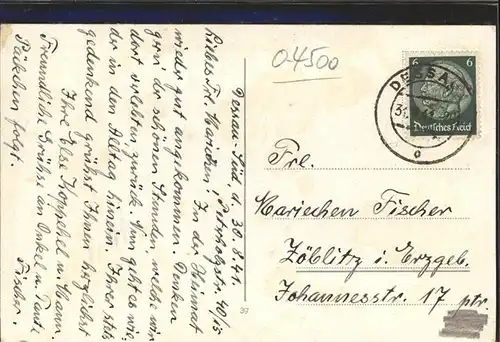 Dessau-Süd, d. 30.8.41.
Liebes Frl. Mariechen! 40/15
In der Heimat
wieder gut angekommen. Denken
gern der schönen Stunden welche wir
dort erlebten zurück. Nun geht es wie=
der in den Alltag hinein. Ihrer stets
gedenkend grüßt Ihnen herzlichst
Ihre Else Koppehel u. Mann.
Freundliche Grüße an Onkel u. Tante
Fischer.
Päckchen folgt.
0-4500
6 6
Deutsches Reich
DESSAU
Frl.
Mariechen Fischer
Zöblitz i. Erzgeb.
Johannesstr. 17 ptr.
39